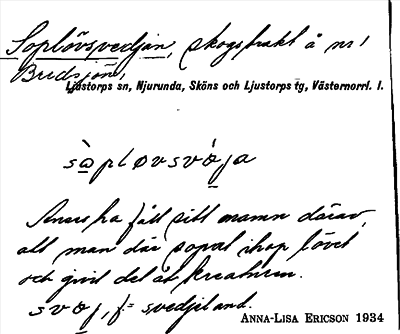 Soplövsvedjan, skogstrakt å nr 1
Bredsjön,
Ljustorps sn, Njurunda, Sköns och Ljustorps tg, Västernorrl. l.
sò̱pløvsvè̱ja
Anses ha fått sitt namn därav,
att man där sopat ihop lövet
och givit det åt kreaturen.
svø̱j, f = svedjeland.
ANNA-LISA ERICSON 1934